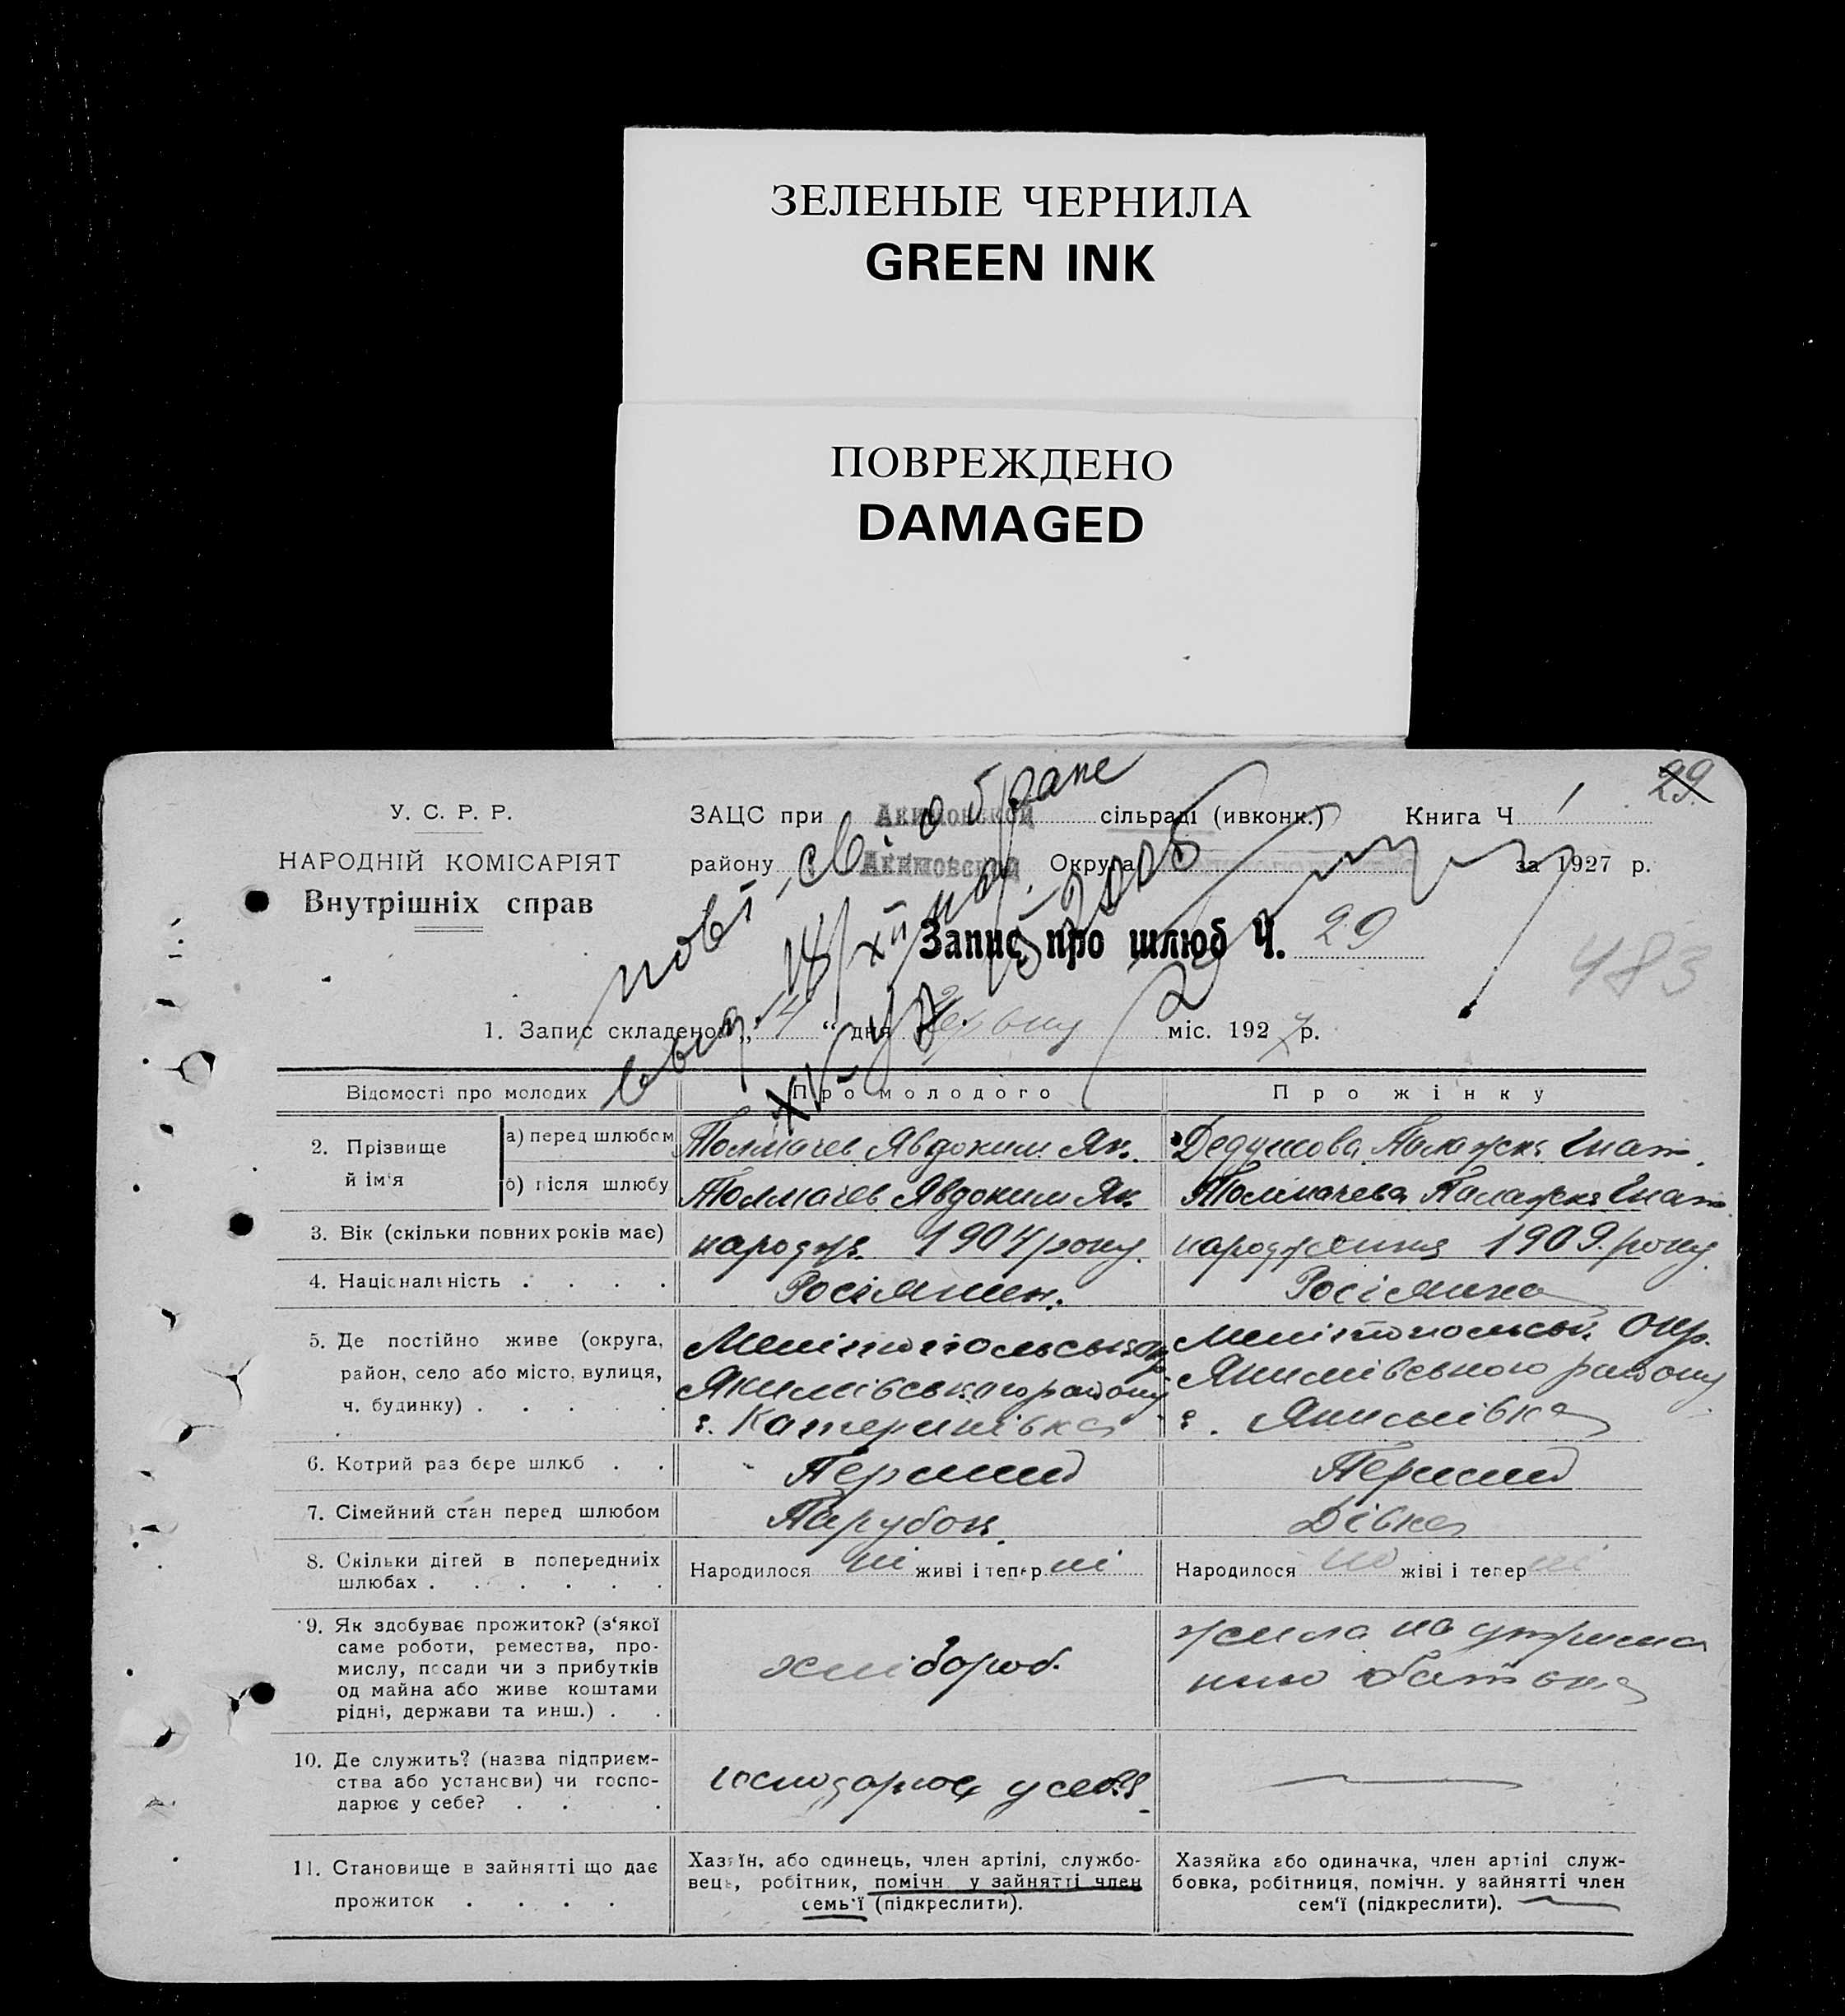 ЗЕЛЕНЫЕ ЧЕРНИЛА
GREEN INK
ПОВРЕЖДЕНО
DAMAGED
29
У. С. Р. Р.
НАРОДНІЙ КОМІСАРІЯТ
Внутрішніх справ
ЗАЦС при Акимовской сільраді (ивконк.) Книга Ч 1
району Акимовской Округа за 1927 р.
Запис про шлюб Ч. 29
483
1. Запис складено „4“ дня міс. 1927 р.
Відомості про молодих
Про молодого
Про жінку
2. Прізвище й ім'я
а) перед шлюбом
Толмачев Явдоким Як.
Дедушова Палажка Гнат.
б) після шлюбу
Толмачев Явдоким Як.
Толмачева Палажка Гнат.
3. Вік (скільки повних років має)
народж. 1904 року.
народження 1909 року.
4. Національність . . . .
Росіянин.
Росіянка
5. Де постійно живе (округа,
район, село або місто, вулиця,
ч. будинку) . . . . .
Мелітопольська окр.
Якимівського району
с. Катеринівка
Мелітопольськ. Окр.
Якимівського району
с. Якимівка
6. Котрий раз бере шлюб . .
Перший
Перший
7. Сімейний стан перед шлюбом
Парубок.
Дівка
8. Скільки дітей в попередниіх
шлюбах . . . . . .
Народилося ні живі і тепер ні
Народилося ні жіві і тепер ні
9. Як здобуває прожиток? (з'якої
саме роботи, ремества, про-
мислу, посади чи з прибутків
од майна або живе коштами
рідні, держави та инш.) . .
хлібороб.
жила на утрима
нню батька
10. Де служить? (назва підприєм-
ства або установи) чи госпо-
дарює у себе? . . .
господарює у себя
11. Становище в зайнятті що дає
прожиток . . . .
Хазяїн, або одинець, член артілі, службо-
вець, робітник, помічн. у зайнятті член
семь'ї (підкреслити).
Хазяйка або одиначка, член артілі служ-
бовка, робітниця, помічн. у зайнятті член
сем'ї (підкреслити).